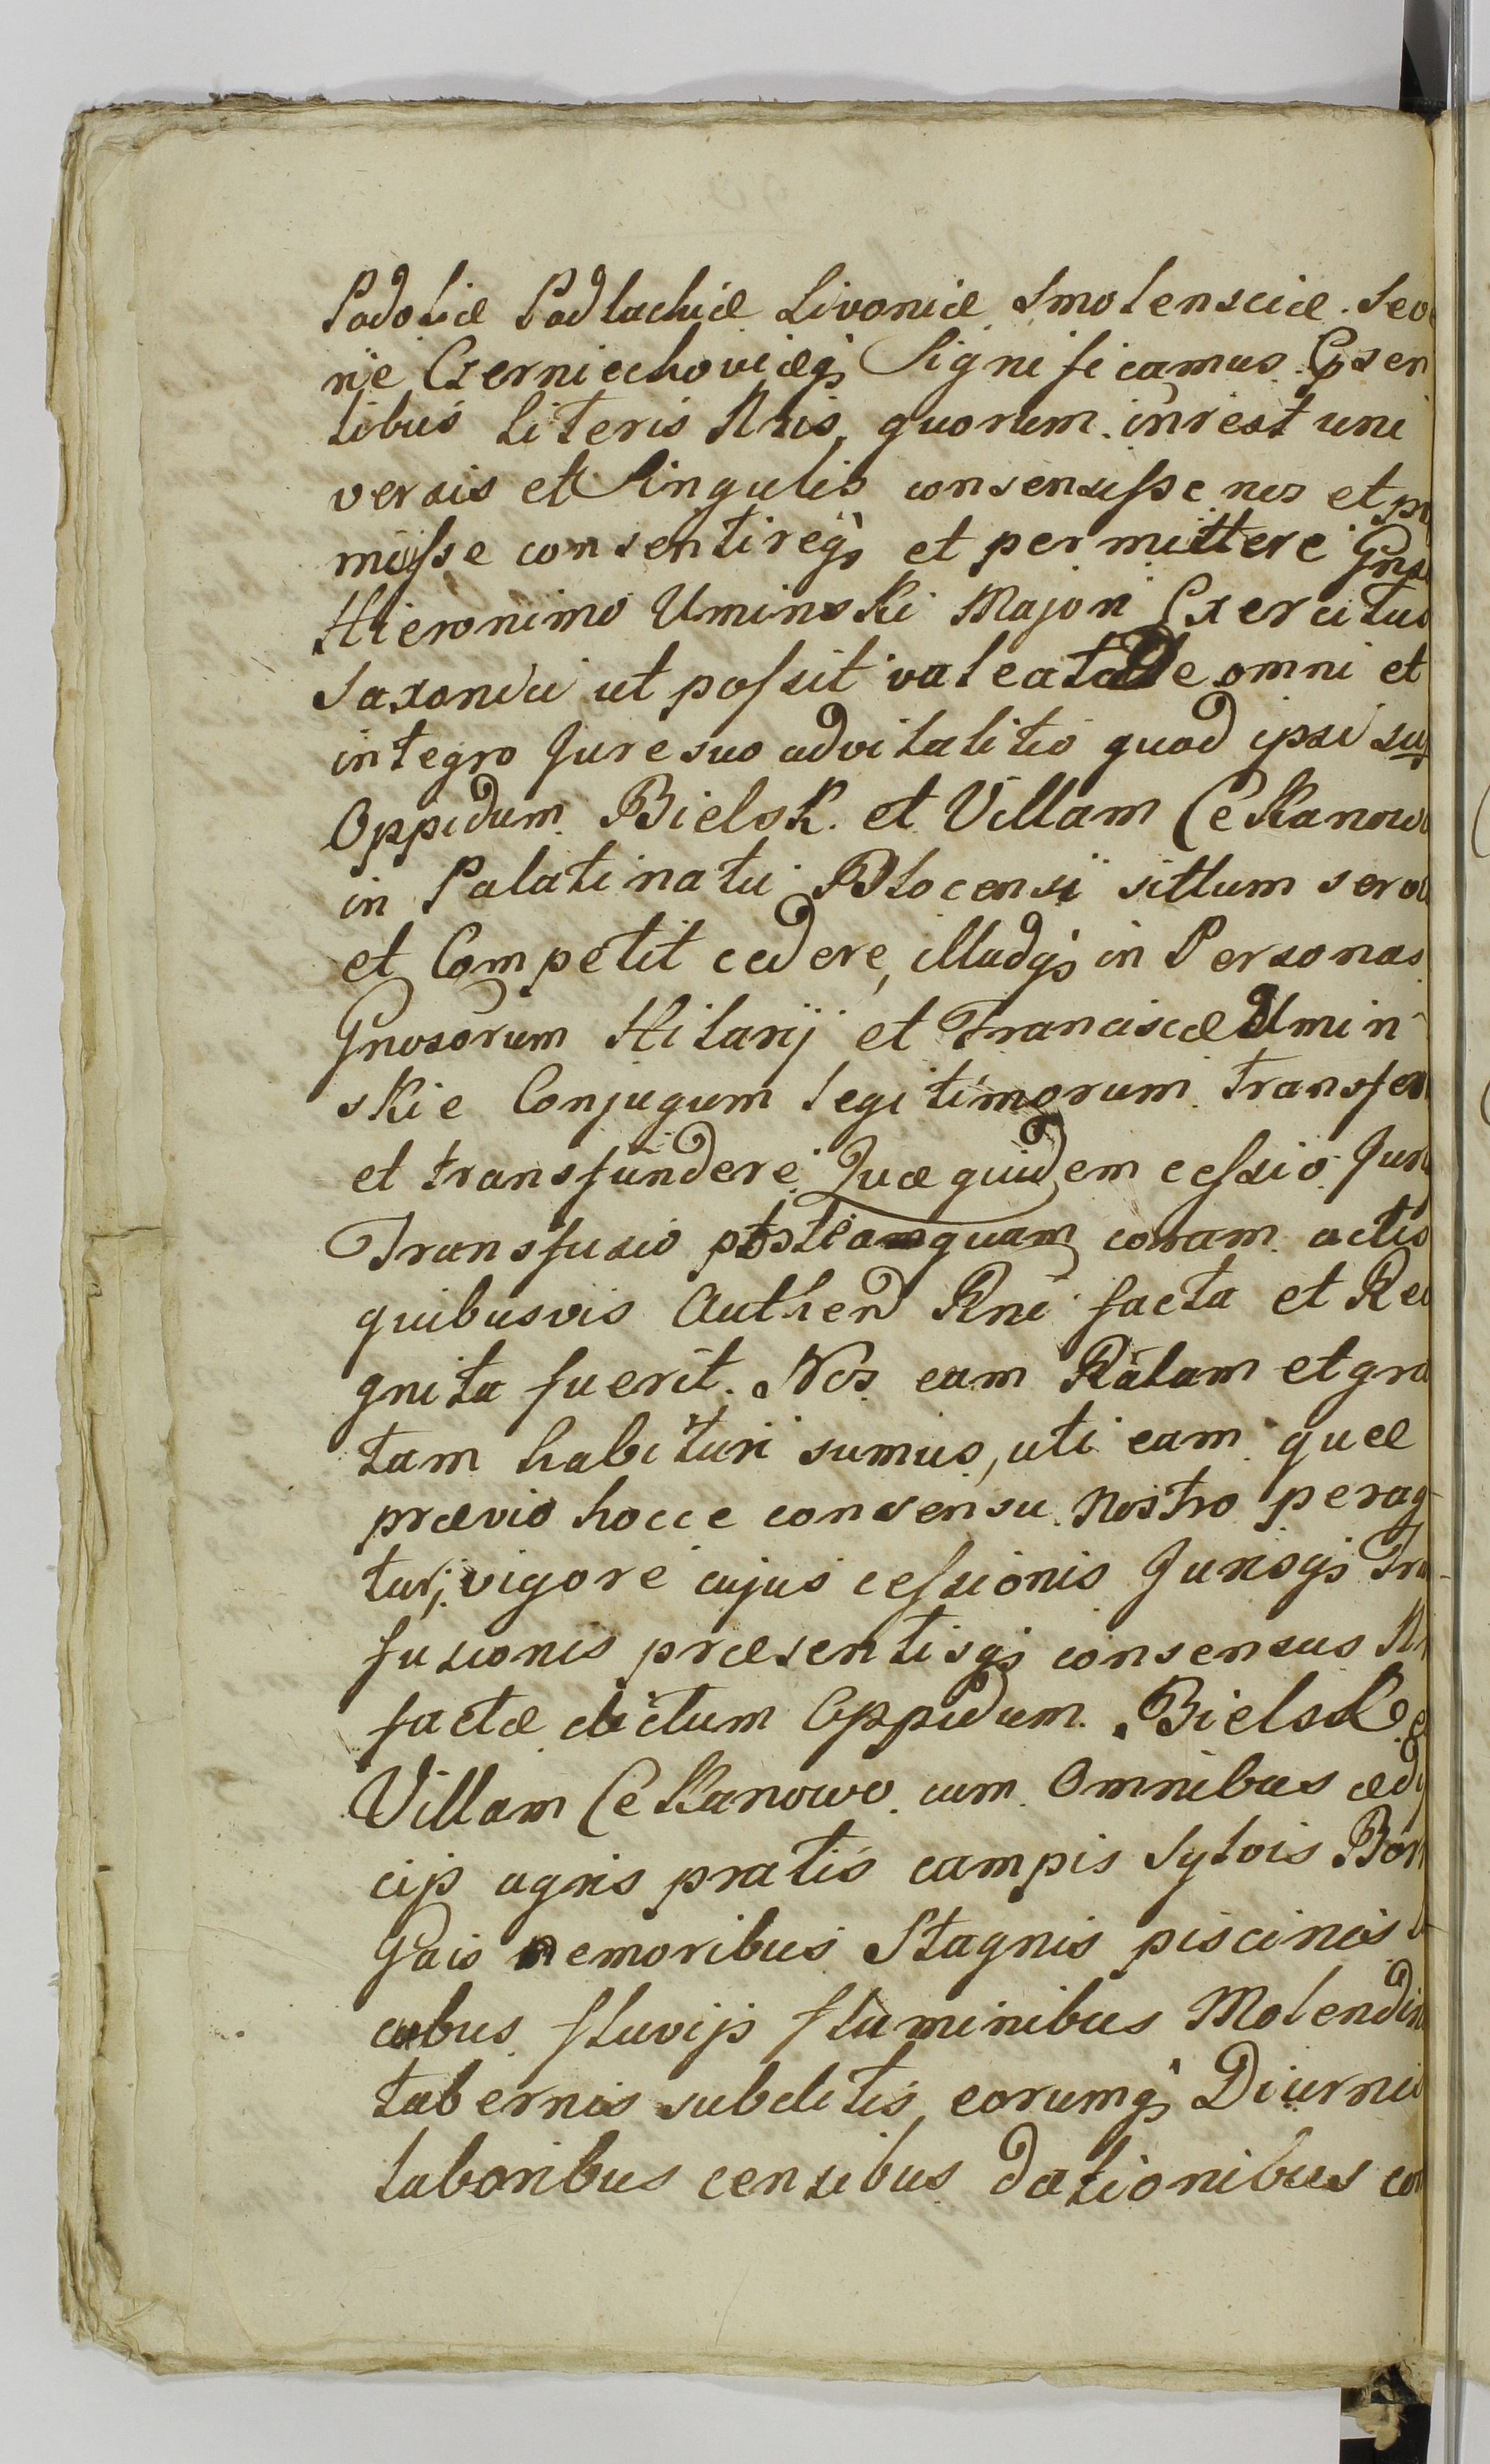 Podoliæ Podlachiæ Livoniæ Smolensciæ Sev
rię Czerniechoviæq; Significamus Præsen
tibus Literis Nris, quorum inrest uni
versis et Singulis consensisse nos et p
misse consentireq; et permittere Gnso
Hieronimo Uminski Majori Exercitus
Saxonici ut possit valeat de omni et
integro Jure suo advitalitio quod ipsi sup
Oppidum Bielsk et Villam Cekanow
in Palatinatu Plocensi sittum serv
et Competit cedere, illudq; in Personas
Gnosorum Hilarij et Franciscæ Umin
skie Conjugum legitimorum transfer
et transfundere. Quæ quidem cessio Jur
Transfusio posteaquam coram actis
quibusvis Authen Rni facta et Re
gnita fuerit. Nos eam Ratam et gra
tam habituri sumus, uti eam quæ
prævio hocce consensu nostro perag
tur; vigore cujus cessionis Jurisq; Tra
fusionis præsentisq; consensus N
factæ dictum Oppidum Bielsk e
Villam Cekanowo cum Omnibus ædi
cijs agris pratis campis Sylvis Bor
Gais nemoribus Stagnis piscinis
cubus fluvijs fluminibus Molendin
tabernis subditis, eorumq; Diurni
laboribus censibus dationibus con